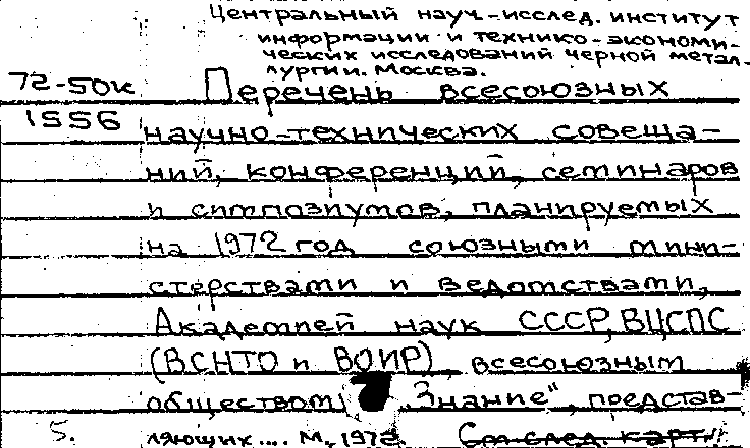 Центральный науч.-исслед. институт
информации и технико-экономи-
ческих исследований черной метал-
лургии. Москва.
72-50к Перечень всесоюзных
1556 научно-технических совеща-
ний, конференций, семинаров
и симпозиумов, планируемых
на 1972 год союзными мини-
стерствами и ведомствами,
Академией наук СССР, ВЦСПС
(ВСНТО и ВОИР), всесоюзным
обществом "Знание", представ-
5. ляющих.... М., 1972. См. след. карт.